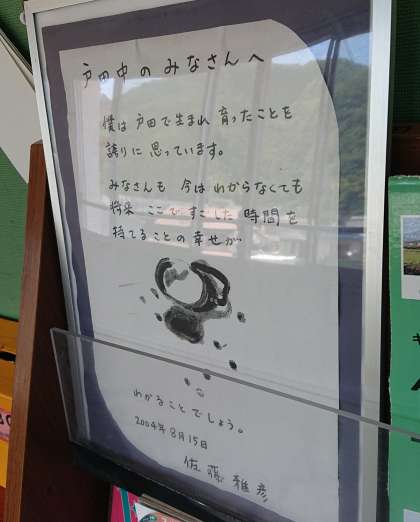 戸田中のみなさんへ
僕は戸田で生まれ育ったことを
誇りに思っています。
みなさんも今はわからなくても
将来ここですごした時間を
持てることの幸せが
わかることでしょう。
2004年8月15日
佐藤雅彦